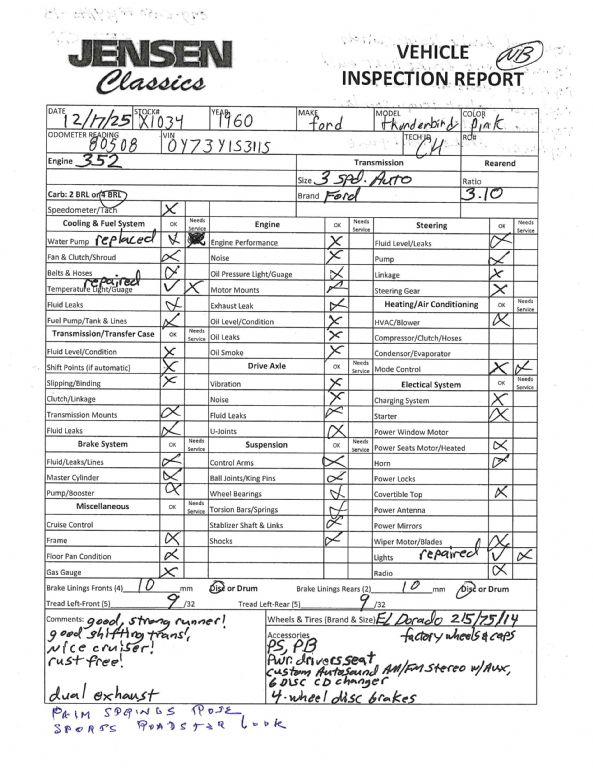 JENSEN
Classics
VEHICLE
INSPECTION REPORT
NB
DATE 12/17/25 STOCK# X1034 YEAR 1960 MAKE ford MODEL thunderbird COLOR Pink
ODOMETER READING 80508 VIN 0Y73Y153115 TECH ID CH RO#
Engine 352 Transmission Rearend
Size 3 spd. Auto Ratio
Carb: 2 BRL or 4 BRL Brand Ford 3.10
Speedometer/Tach X
Cooling & Fuel System OK Needs Service Engine OK Needs Service Steering OK Needs Service
Water Pump replaced Engine Performance X Fluid Level/Leaks X
Fan & Clutch/Shroud X Noise X Pump X
Belts & Hoses X Oil Pressure Light/Guage X Linkage X
repaired
Temperature Light/Guage X Motor Mounts Steering Gear X
Fluid Leaks X Exhaust Leak X Heating/Air Conditioning OK Needs Service
Fuel Pump/Tank & Lines X Oil Level/Condition X HVAC/Blower X
Transmission/Transfer Case OK Needs Service Oil Leaks X Compressor/Clutch/Hoses
Fluid Level/Condition X Oil Smoke X Condensor/Evaporator
Shift Points (if automatic) X Drive Axle OK Needs Service Mode Control X X
Slipping/Binding X Vibration X Electical System OK Needs Service
Clutch/Linkage Noise X Charging System X
Transmission Mounts X Fluid Leaks X Starter X
Fluid Leaks X U-Joints X Power Window Motor
Brake System OK Needs Service Suspension OK Needs Service Power Seats Motor/Heated X
Fluid/Leaks/Lines X Control Arms X Horn X
Master Cylinder X Ball Joints/King Pins X Power Locks
Pump/Booster X Wheel Bearings X Covertible Top X
Miscellaneous OK Needs Service Torsion Bars/Springs X Power Antenna
Cruise Control Stablizer Shaft & Links X Power Mirrors
Frame X Shocks X Wiper Motor/Blades X
Floor Pan Condition X Lights repaired X
Gas Gauge X Radio X
Brake Linings Fronts (4) 10 mm Disc or Drum Brake Linings Rears (2) 10 mm Disc or Drum
Tread Left-Front (5) 9 /32 Tread Left-Rear (5) 9 /32
Comments: good, strong runner! Wheels & Tires (Brand & Size) El Dorado 215/75/14
good shifting trans, Accessories factory wheels & caps
Nice cruiser! PS, PB
rust free! Pwr. drivers seat
custom Autosound AM/FM stereo w/Aux,
6 Disc CD changer
dual exhaust 4-wheel disc brakes
PALM SPRINGS ROSE
SPORTS ROADSTER Look